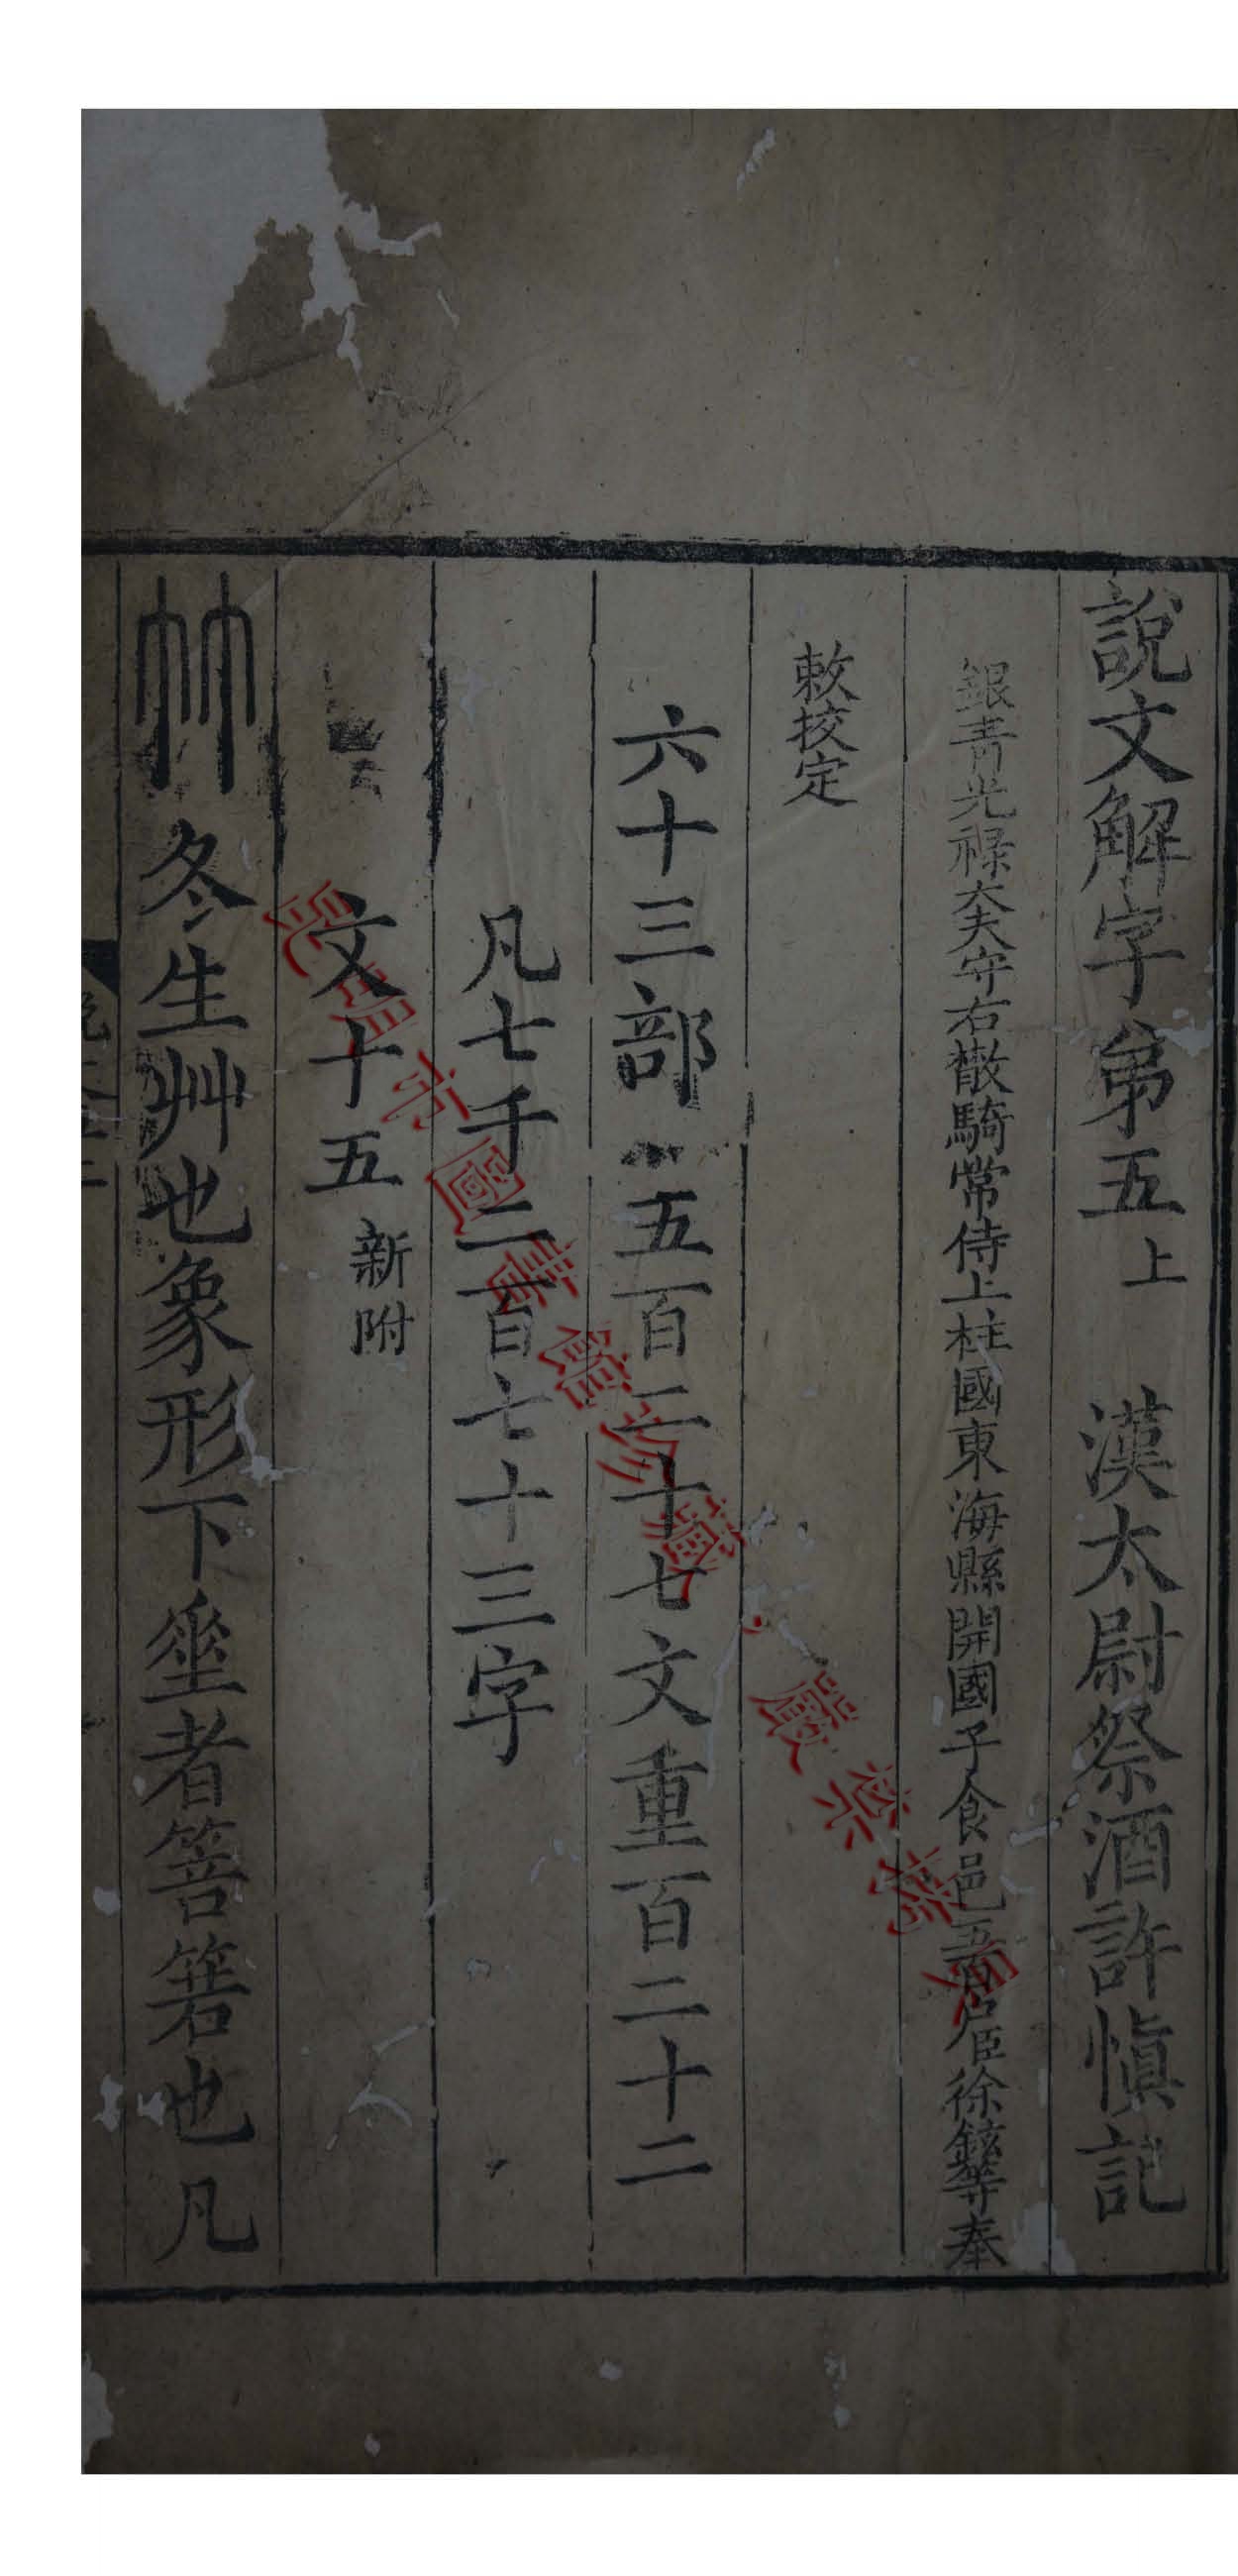 說文解字弟五上 漢太尉祭酒許慎記
銀青光祿大夫守右散騎常侍上柱國東海縣開國子食邑五百戶臣徐鉉等奉
敕挍定
六十三部 五百二十七文重百二十二
凡七千二百七十三字
文十五新附
竹 冬生艸也象形下垂者箁箬也凡
昆明市圖書館珍藏，嚴禁擅